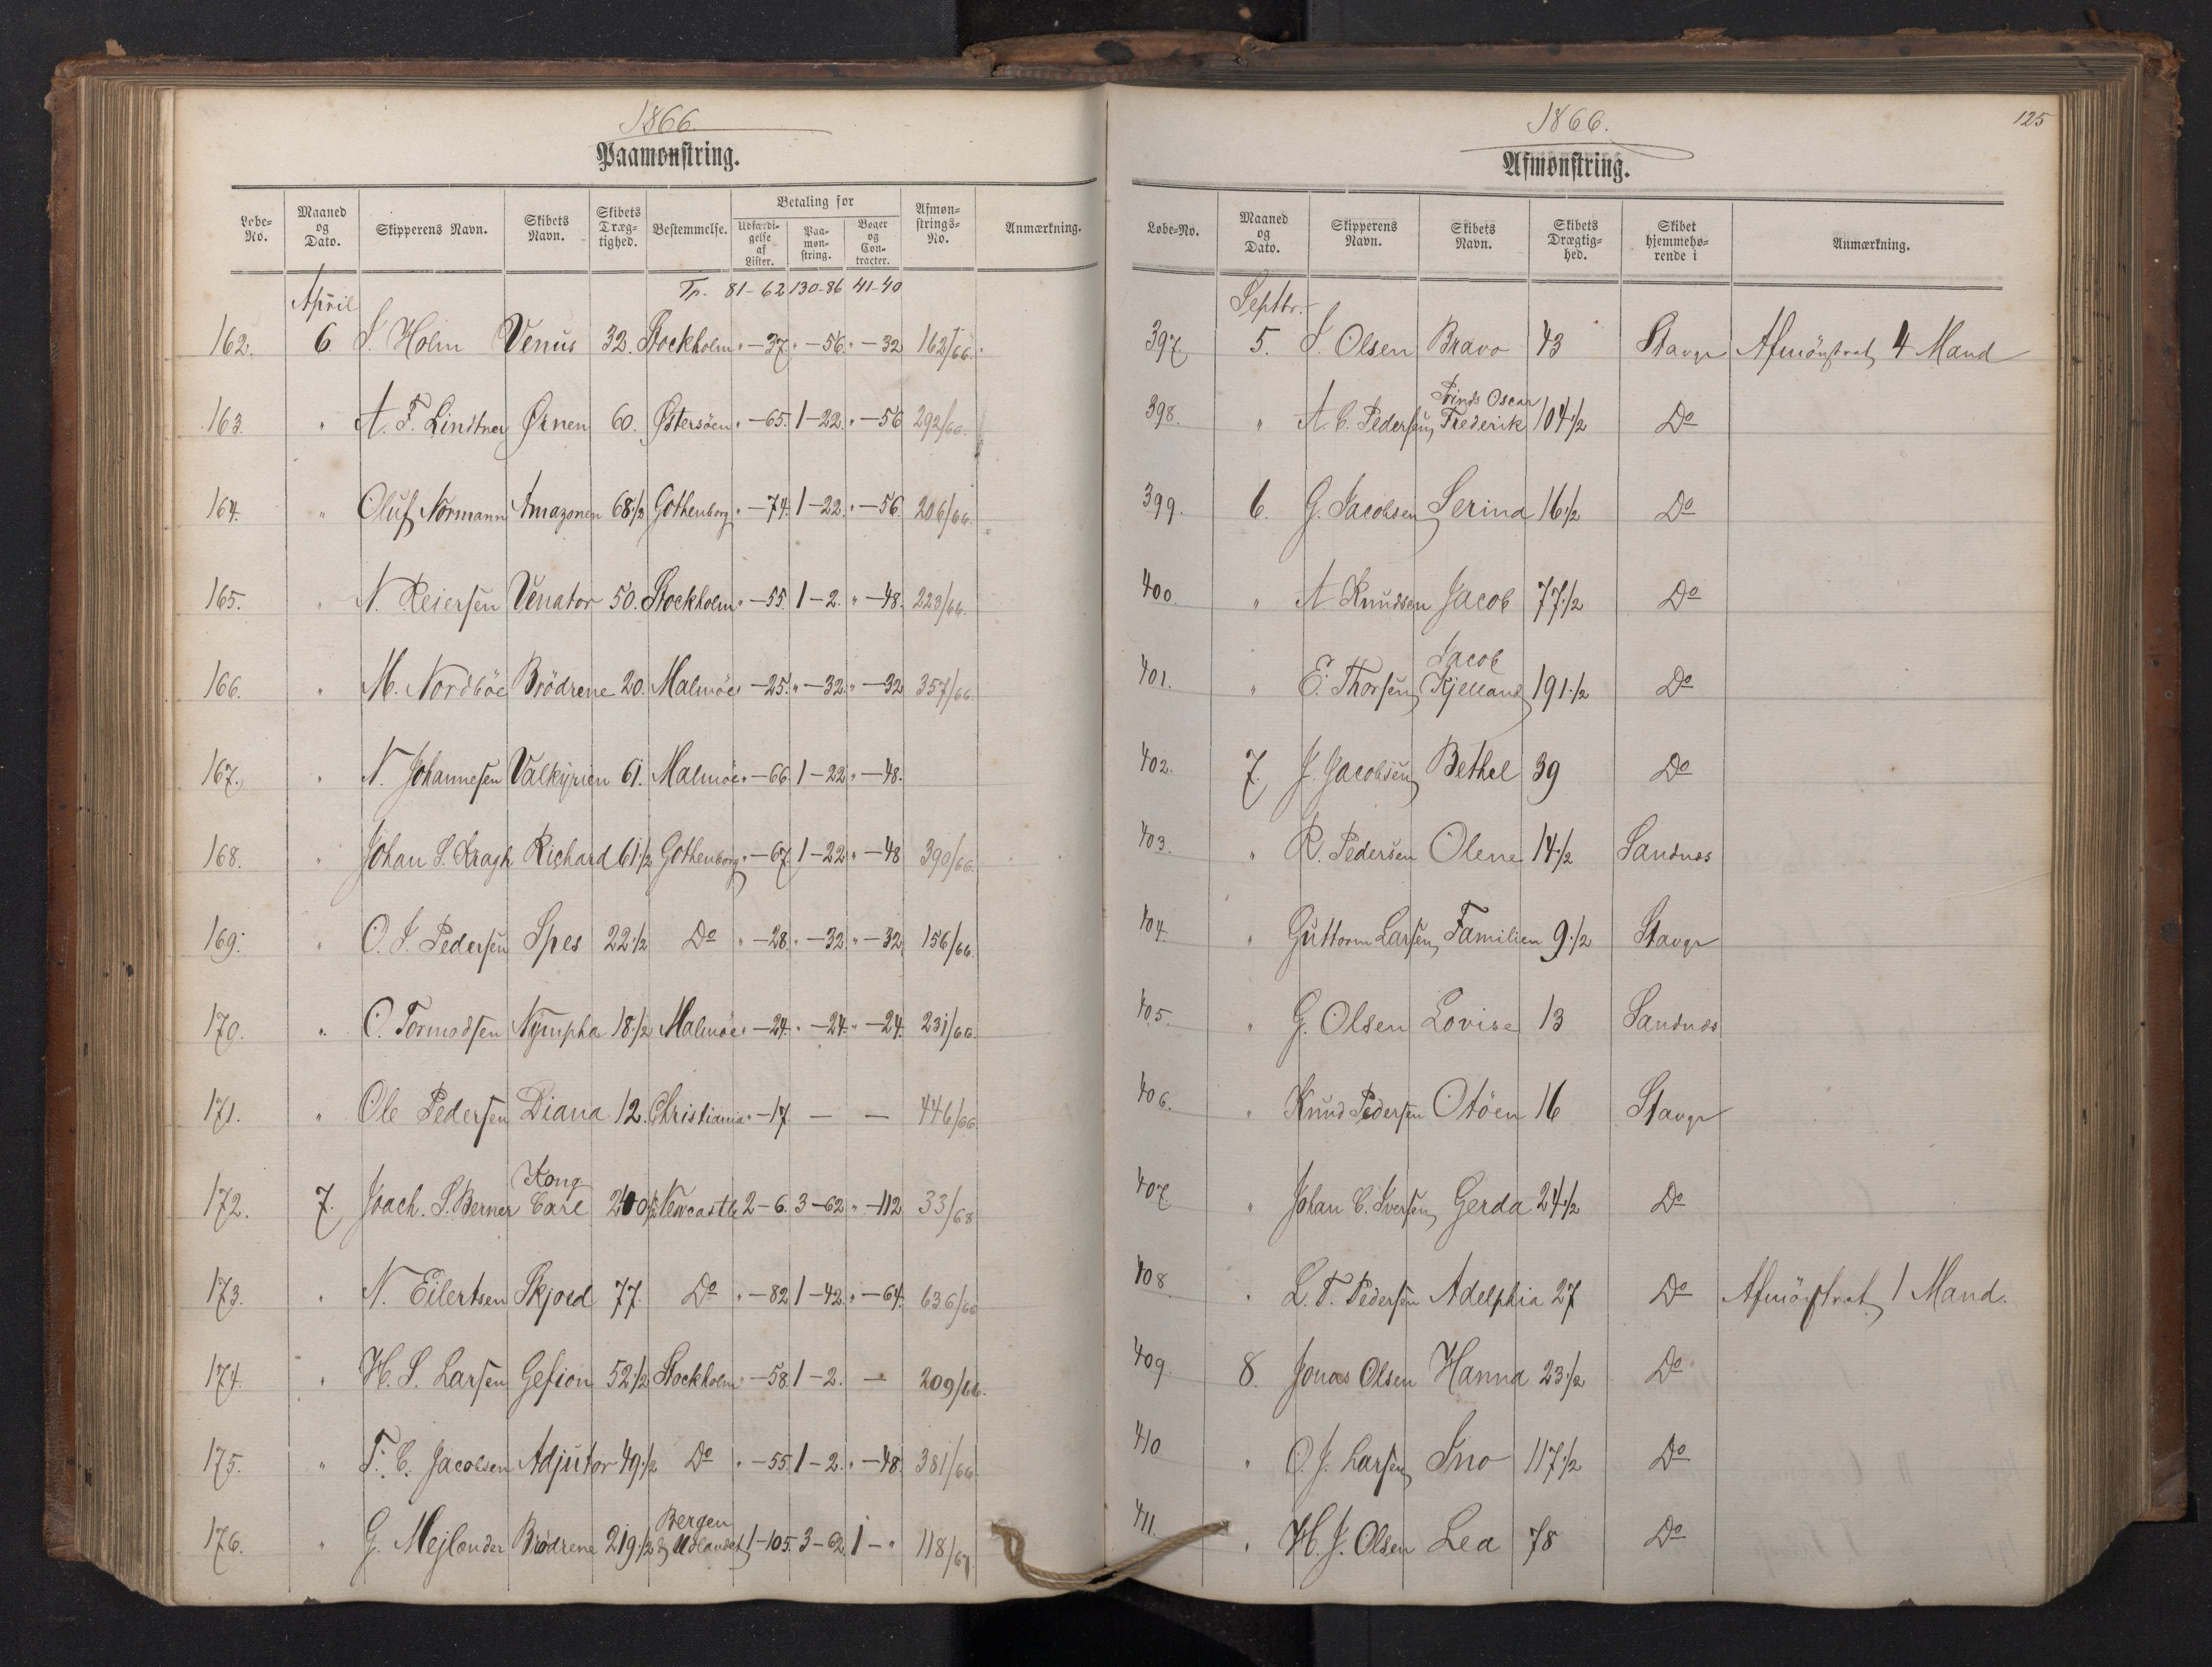 1866.
Paamønstring.
Løbe-No. Maaned og Dato. Skipperens Navn. Skibets Navn. Skibets Dræg-tighed. Bestemmelse. Betaling for Udfærdi-gelse af Lister. Paa-møn-string. Bøger og Con-tracter. Afmøn-strings-No. Anmærkning.
Tr. 81-62 130-86 41-40
April
162. 6. S. Holm Venus 32. Stockholm " -37. " -56. " -32 162/66.
163. " A. F. Lindtner Ørnen 60. Østersöen " -65. 1-22. " -56 292/66.
164. " Oluf Normann Amazonen 68 1/2 Gothenborg " -74. 1-22. " -56. 206/66.
165. " N. Reiersen Venator 50. Stockholm " -55. 1-2. " -48. 223/66.
166. " M. Nordböe Brödrene 20. Malmöe " -25. " -32. " -32 357/66
167. " N. Johannesen Valkyrien 61. Malmöe " -66. 1-22. " -48.
168. " Johan S. Kragh Richard 61 1/2 Gothenborg " -67. 1-22 " -48 390/66.
169. " O. J. Pedersen Spes 22 1/2 Do " -28. " -32. " -32. 156/66.
170. " O. Tormodsen Nympha 18 1/2 Malmöe " -24. " -24. " -24. 231/66.
171. " Ole Pedersen Diana 12. Christiania " -17. — — 446/66.
172. 7. Joach. S. Berner Kong Carl 200 1/2 Newcastle 2-6. 3-62 " -112 33/68
173. " N. Eilertsen Skjold 77. Do " -82 1-42. " -64. 636/66
174. " H. S. Larsen Gefion 52 1/2 Stockholm " -58. 1-2. — 209/66.
175. " T. C. Jacobsen Adjutor 49 1/2 Do " -55. 1-2. " -48. 381/66.
176. " G. Mejlander Brödrene 219 1/2 Bergen & Udlandet 1-105. 3-62. 1-" 118/67.
125
1866.
Afmønstring.
Løbe-No. Maaned og Dato. Skipperens Navn. Skibets Navn. Skibets Drægtig-hed. Skibet hjemmehø-rende i Anmærkning.
Septbr.
397. 5. S. Olsen Bravo 43 Stavgr Afmönstret 4 Mand
398. " A. C. Pedersen Prinds Oscar Frederik 104 1/2 Do
399. 6. G. Jacobsen Serina 16 1/2 Do
400. " A. Knudsen Jacob 77 1/2 Do
401. " E. Thorsen Jacob Kjelland 191 1/2 Do
402. 7. J. Jacobsen Bethel 39 Do
403. " R. Pedersen Olene 14 1/2 Sandnes
404. " Guttorm Larsen Familien 9 1/2 Stavgr
405. " G. Olsen Lovise 13 Sandnes
406. " Knud Pedersen Otöen 16 Stavgr
407. " Johan C. Iversen Gerda 24 1/2 Do
408. " L. T. Pedersen Adelphia 27 Do Afmönstret 1 Mand.
409. 8. Jonas Olsen Hanna 23 1/2 Do
410 " O. J. Larsen Ino 117 1/2 Do
411. " H. J. Olsen Lea 78 Do